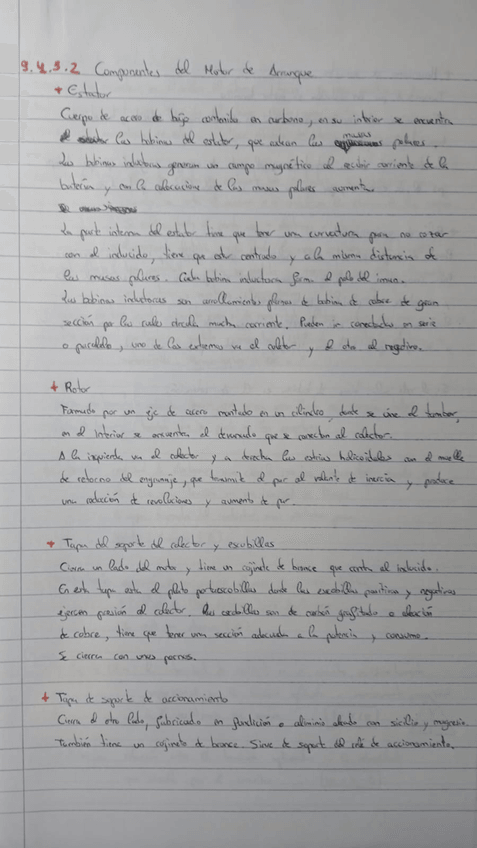 9.4.3.2 Componentes del Motor de Arranque
+ Estator
Cuerpo de acero de bajo contenido en carbono, en su interior se encuentra
las bobinas del estator, que excitan las masas polares.
Las bobinas inductoras generan un campo magnético al recibir corriente de la
batería y con la colocacion de las masas polares aumenta.
La part interna del estator tiene que tener una curvatura para no rozar
con el inducido, tiene que estar centrado y a la misma distancia de
las masas polares. Cada bobina inductora forma el polo del iman.
Las bobinas inductoras son arrollamientos planos de bobina de cobre de gran
sección por las cuales circula mucha corriente. Pueden ir conectadas en serie
o paralelo, uno de los extremos va al colector y el otro al negativo.
+ Rotor
Formado por un eje de acero montado en un cilindro, donde se une el tambor,
en el interior se encuentra el devanado que se conectan al colector.
A la izquierda va el colector y a derecha las estrias helicoidales con el muelle
de retorno del engranaje, que transmite el par al volante de inercia y produce
una reducción de revoluciones y aumento de par.
+ Tapa del soporte del colector y escobillas
Cierra un lado del motor y tiene un cojinete de bronce que centra al inducido.
En esta tapa esta el plato portaescobillas donde las escobillas positivas y negativas
ejercen presión al colector. Las escobillas son de carbón grafitado o aleación
de cobre, tiene que tener una sección adecuada a la potencia y consumo.
Se cierra con unos pernos.
+ Tapa de soporte de accionamiento
Cierra el otro lado, fabricado en fundición o aluminio aleado con silicio y magnesio.
También tiene un cojinete de bronce. Sirve de soporte del de accionamiento.